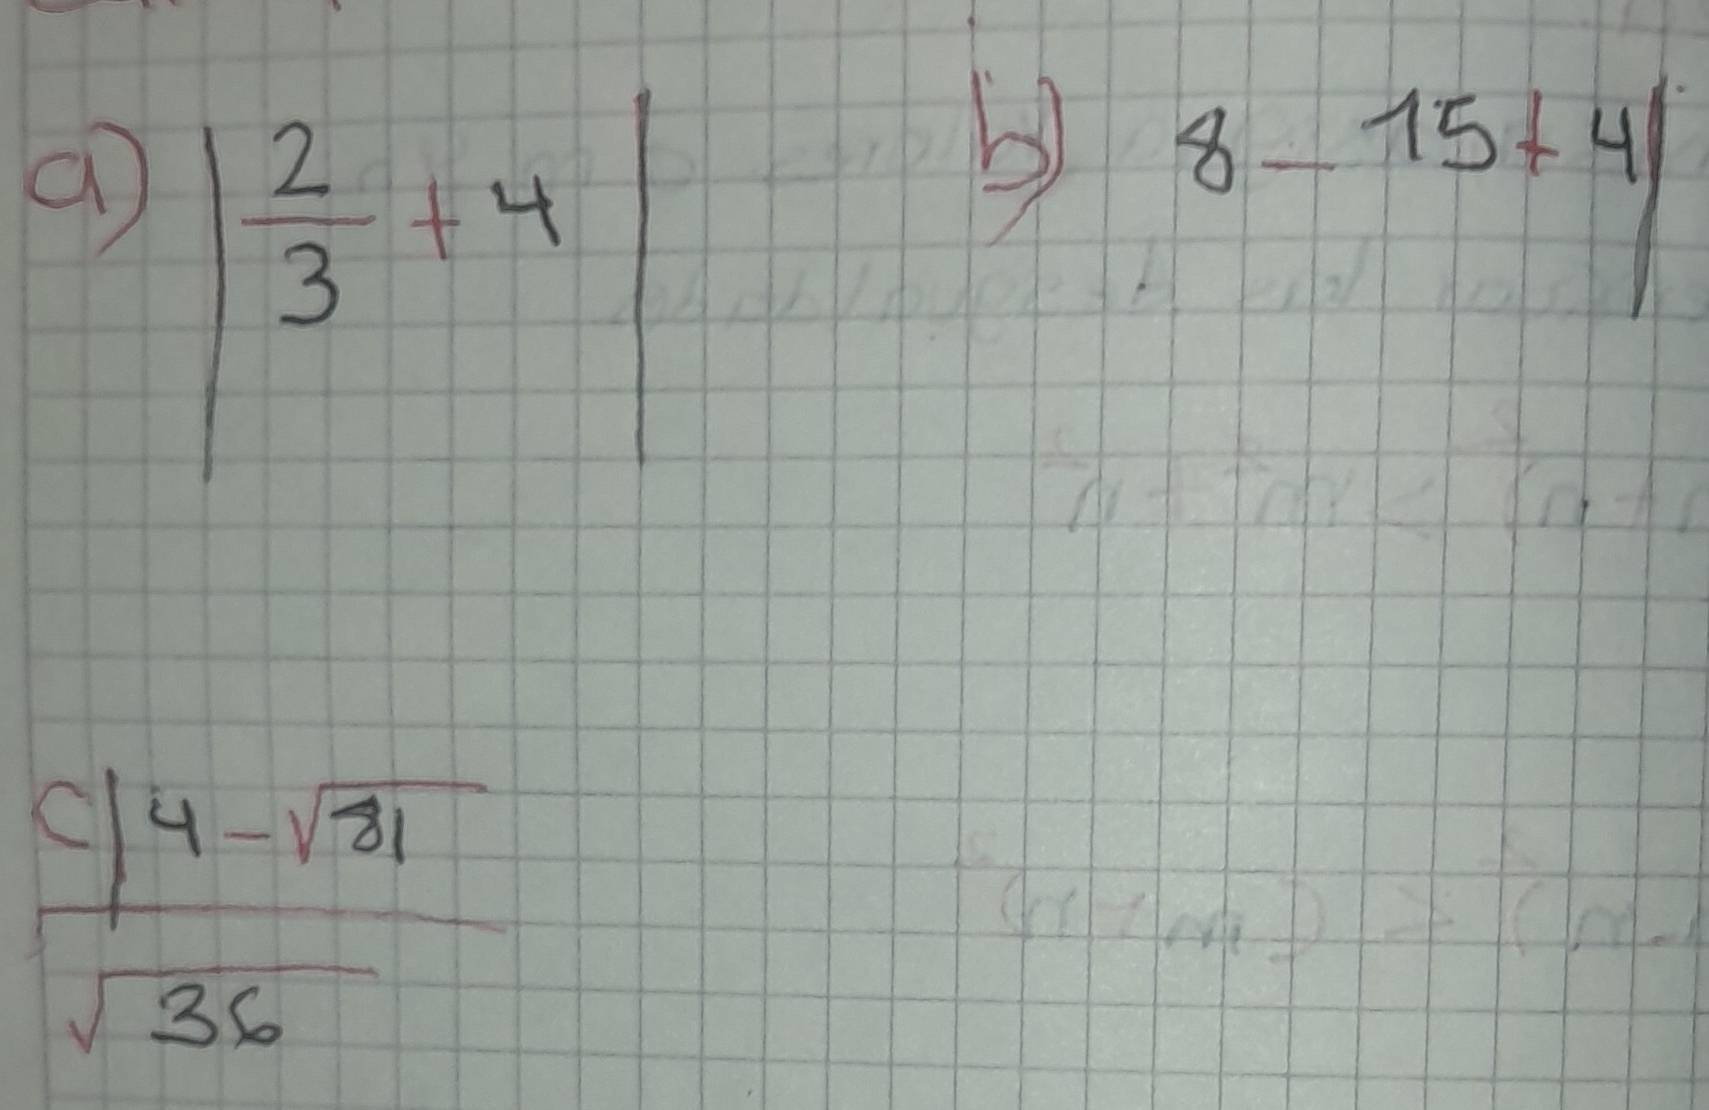 a) | 2/3 + 4 |
b) 8 - 15 + 4 |
c | 4 - √81
√36